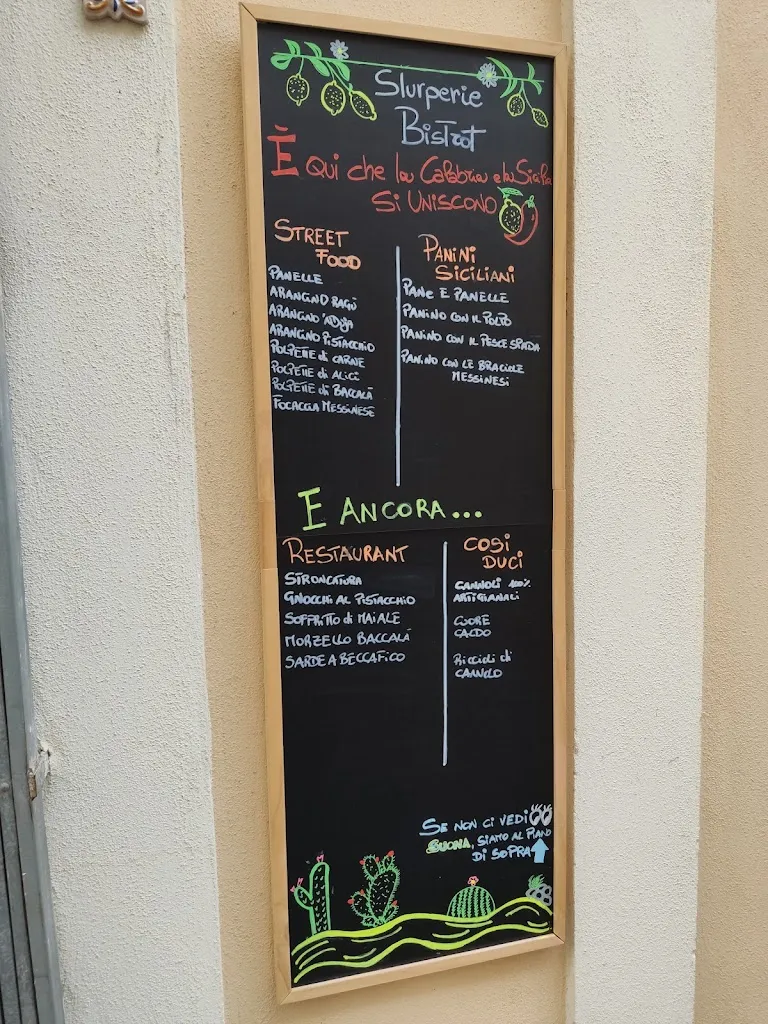 Slurperie
Bistrot
È QUI che la Calabria e la Sicilia
SI UNISCONO
STREET
FOOD
PANELLE
ARANCINO RAGÙ
ARANCINO 'NDUJA
ARANCINO PISTACCHIO
POLPETTE di CARNE
POLPETTE di ALICI
POLPETTE di BACCALÀ
FOCACCIA MESSINESE
PANINI
SICILIANI
PANE E PANELLE
PANINO CON IL POLPO
PANINO CON IL PESCE SPADA
PANINO CON LE BRACIOLE
MESSINESI
E ANCORA...
RESTAURANT
STRONCATURA
GNOCCHI AL PISTACCHIO
SOFFRITTO di MAIALE
MORZELLO BACCALÀ
SARDE A BECCAFICO
COSI
DUCI
CANNOLI 100%
ARTIGIANALI
CUORE
CALDO
Riccioli di
CANNOLO
SE NON CI VEDI
SUONA, SIAMO AL PIANO
DI SOPRA